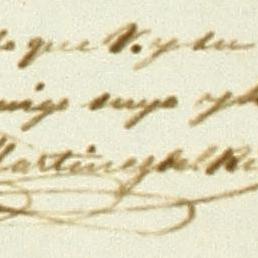 lo que V. y su
migo suyo y
Martinez del Rio